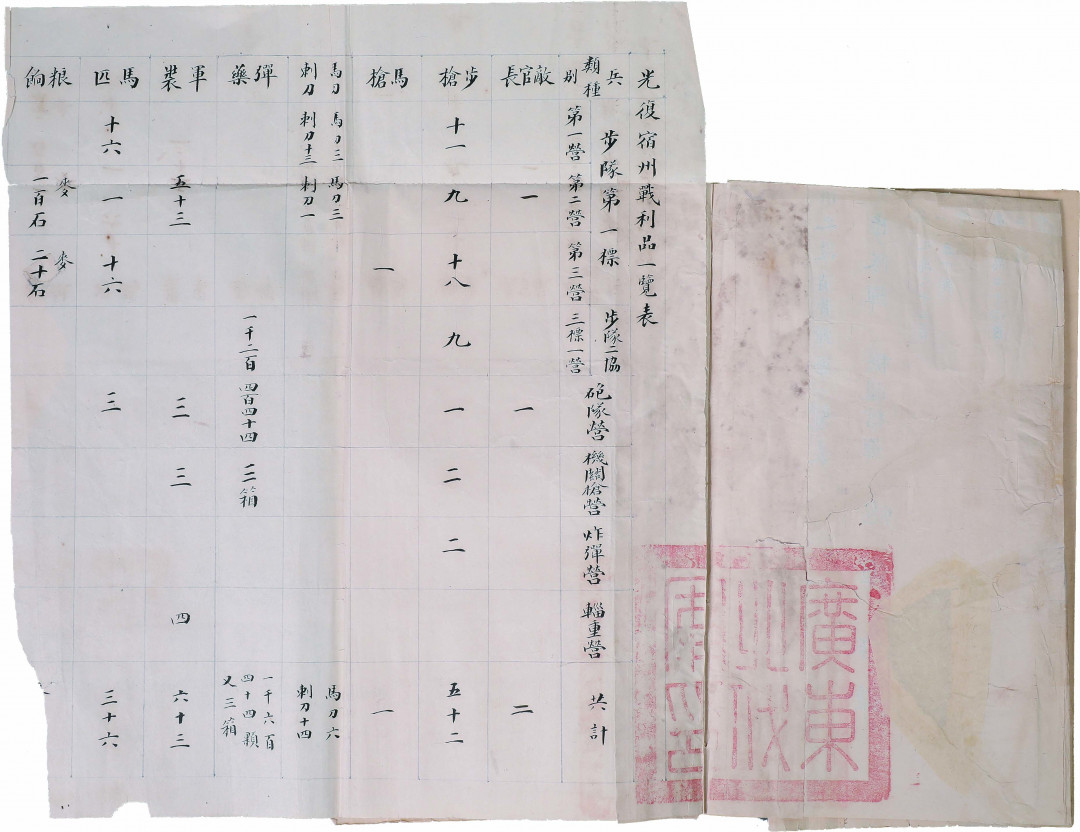 光復宿州戰利品一覽表
兵種類別 步隊第一標 步隊二協
第一營 第二營 第三營 三標一營 砲隊營 機關槍營 炸彈營 輜重營 共計
敵官長 一 一 二
步槍 十一 九 十八 九 一 二 二 五十二
馬槍 一 一
馬刀 馬刀三 馬刀三 馬刀六
刺刀 刺刀十三 刺刀一 刺刀十四
彈藥 一千二百 四百四十四 三箱 一千六百四十四顆又三箱
軍裝 五十三 三 三 四 六十三
馬匹 十六 一 十六 三 三十六
粮餉 麥一百石 麥二十石
廣東
北伐